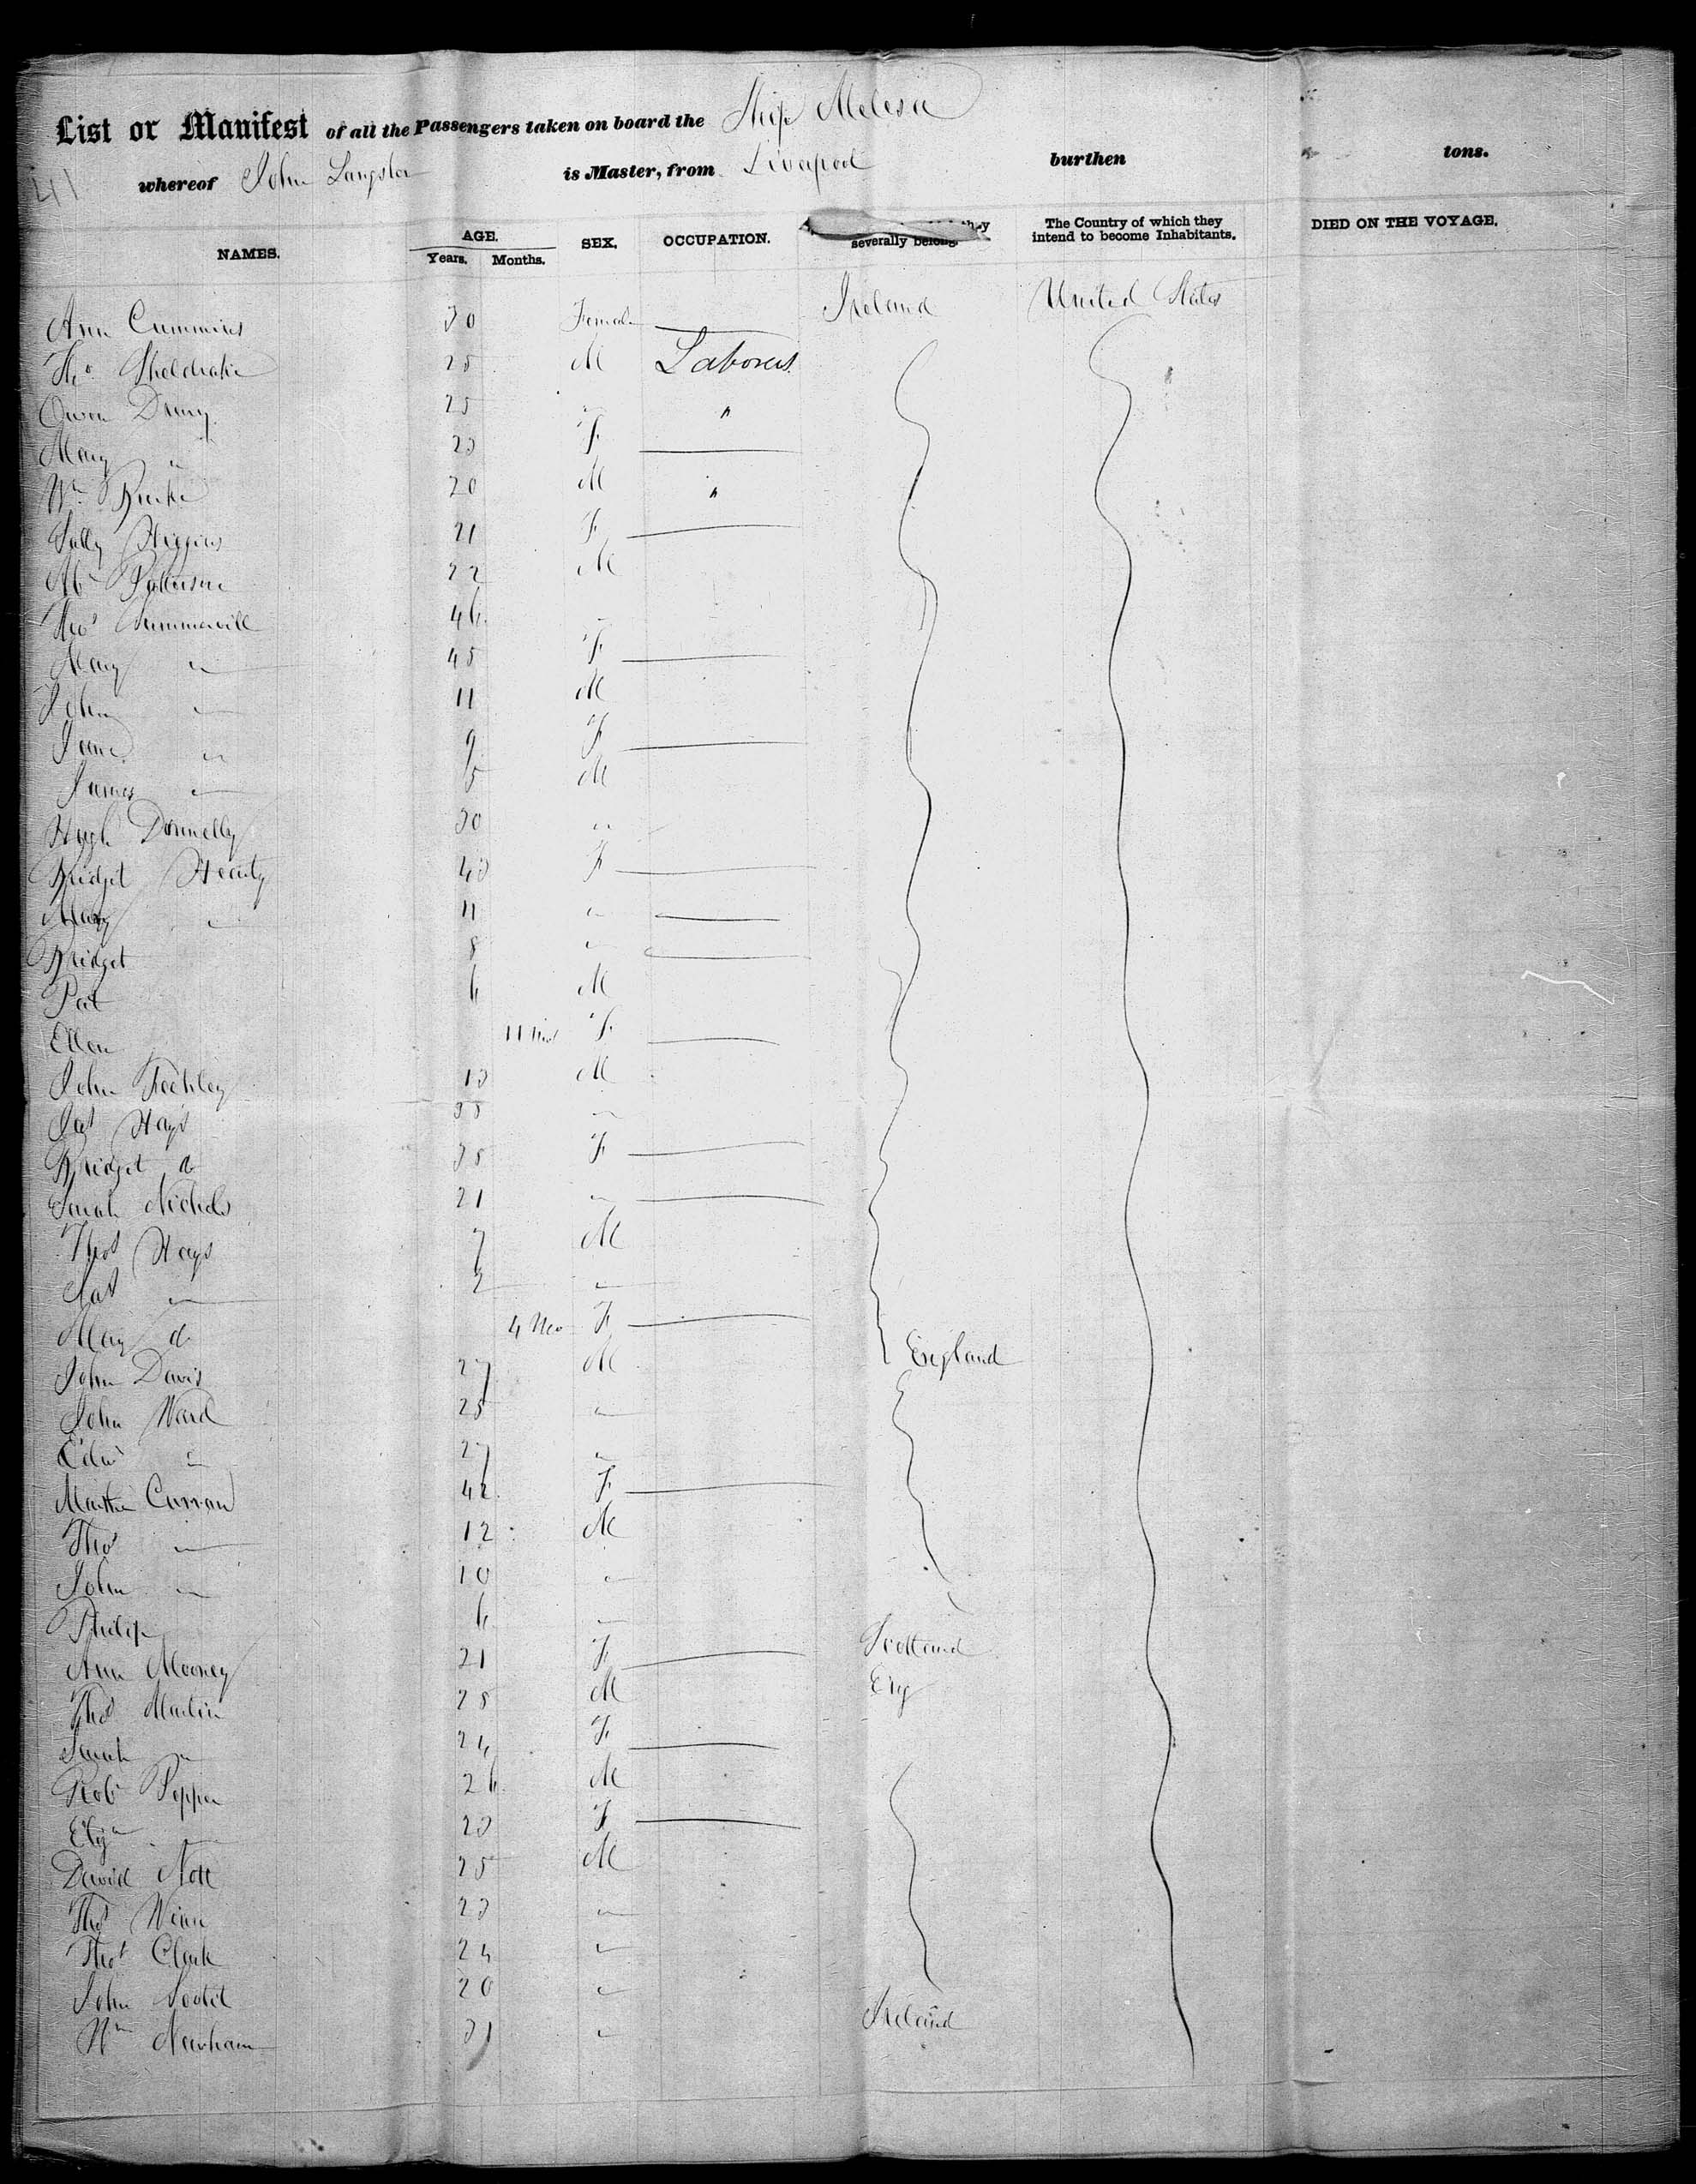 List or Manifest of all the Passengers taken on board the Ship Melesa
41 whereof John Langster is Master, from Liverpool burthen tons.
NAMES. AGE. Years. Months. SEX. OCCUPATION. they severally belong. The Country of which they intend to become Inhabitants. DIED ON THE VOYAGE.
Ann Cummins 30 Female Ireland United States
Tho. Sheldrake 25 M Laborers
Owen 25 "
Mary " 23 F
Wm Burke 20 M "
Sally Higgins 21 F
Patterson 22 M
Thos Summerville 46
Mary " 45 F
John " 11 M
Jane " 9 F
James " 5 M
Hugh Donnelly 30 "
Bridget 43 F
Mary " 11 "
Bridget 8 "
Pat 6 M
Ellen 11 Mos F
John 13 M
Hays 35 "
Bridget do 35 F
Sarah Nichols 21 "
Thos Hays 7 M
" 2 "
Mary do 4 Mo F
John Davis 27 M England
John Ward 25 "
Edwd " 27 "
Martha Curran 42 F
Thos " 12 M
John " 10 "
Philip 6 "
Ann Mooney 21 F Scotland
Thos Martin 25 M Eng
Sarah " 24 F
Robt Pepper 26 M
" 23 F
David Nott 25 M
Thos Winn 23 "
Thos Clark 24 "
John 20 "
Wm Newham 31 " Ireland